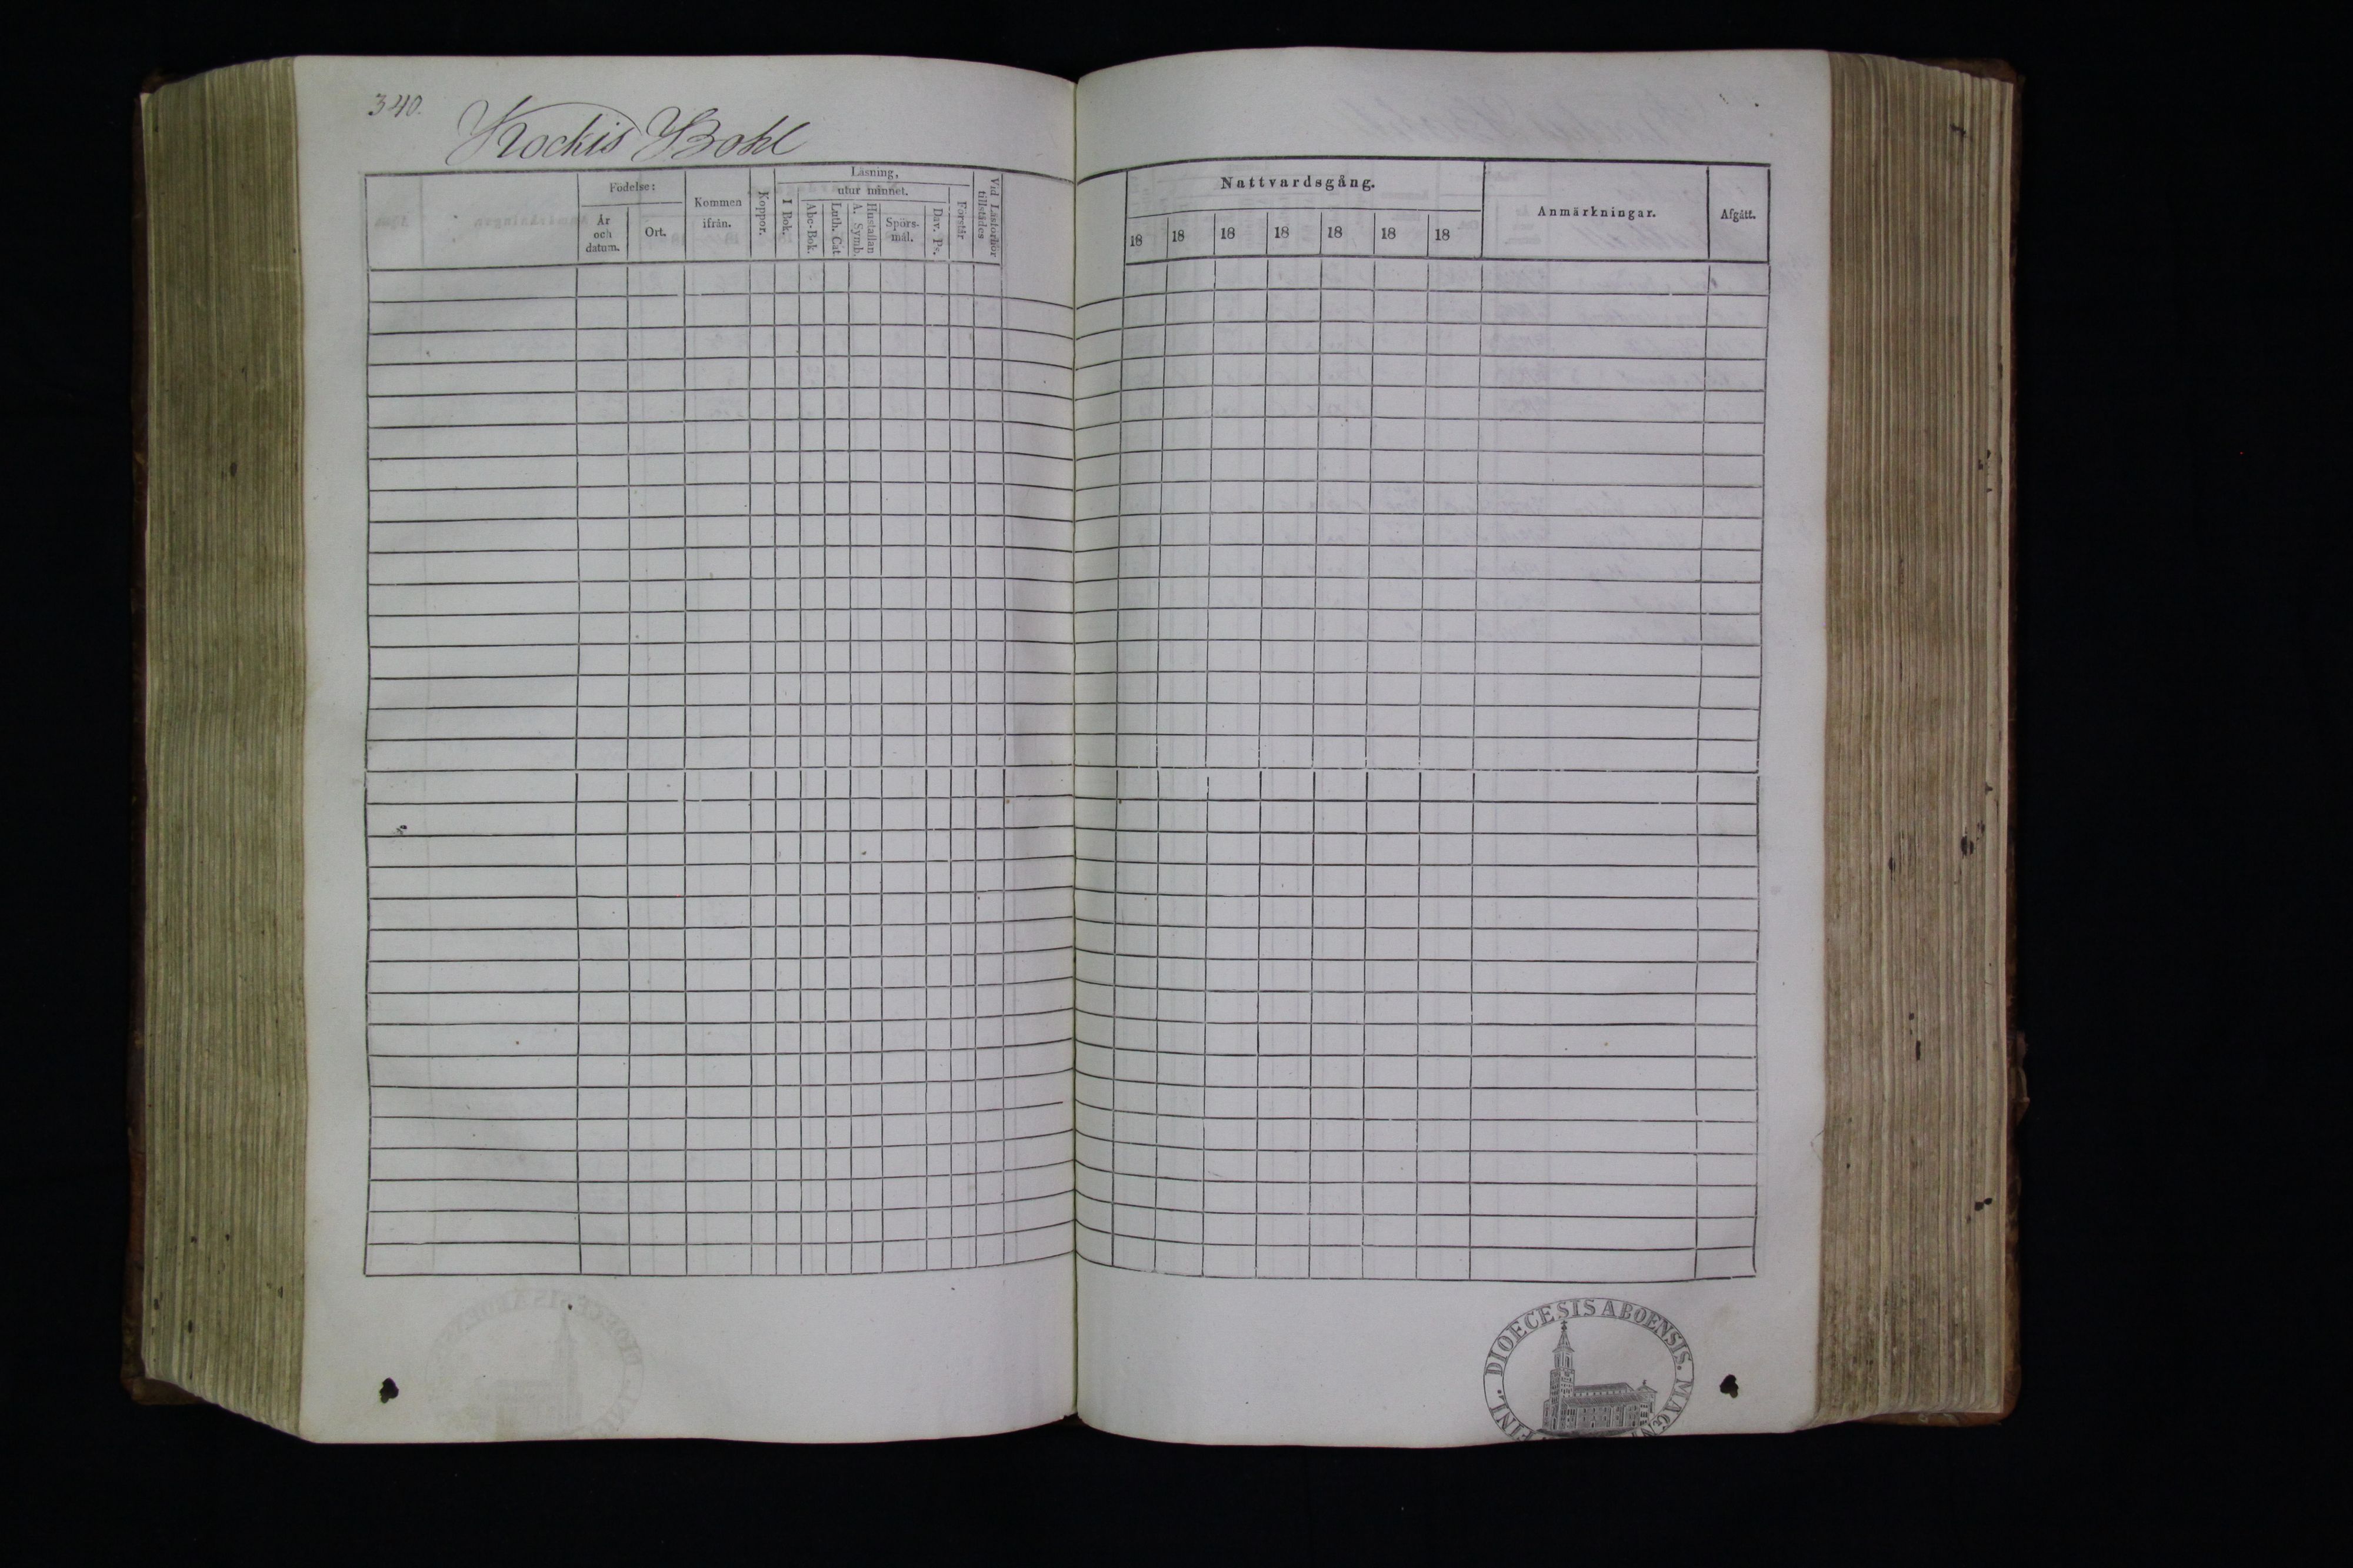 340.
Kockis Bohl
Födelse:
År
och
datum.
Ort.
Kommen
ifrån.
Koppor.
Läsning,
utur minnet.
I Bok.
Abc-Bok.
Luth. Cat
Hustaflan
A. Symb.
Spörs-
mål.
Dav. Ps.
Förstår
Vid Läsförhör
tillstädes
Nattvardsgång.
18 18 18 18 18 18 18
Anmärkningar.
Afgått.
DIOECESIS ABOENSIS. MAGNI
FINL.